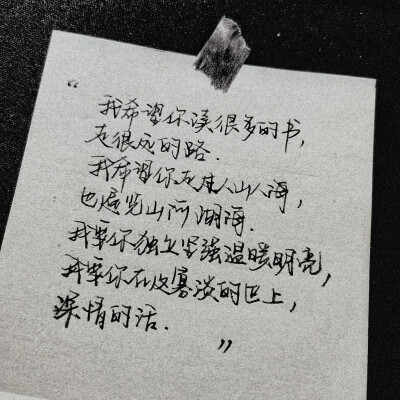 “
我希望你读很多的书,
走很远的路.
我希望你人山人海,
也遍览山河湖海.
我要你独立坚强温暖明亮,
我要你在这寡淡的世上,
深情的活.
”